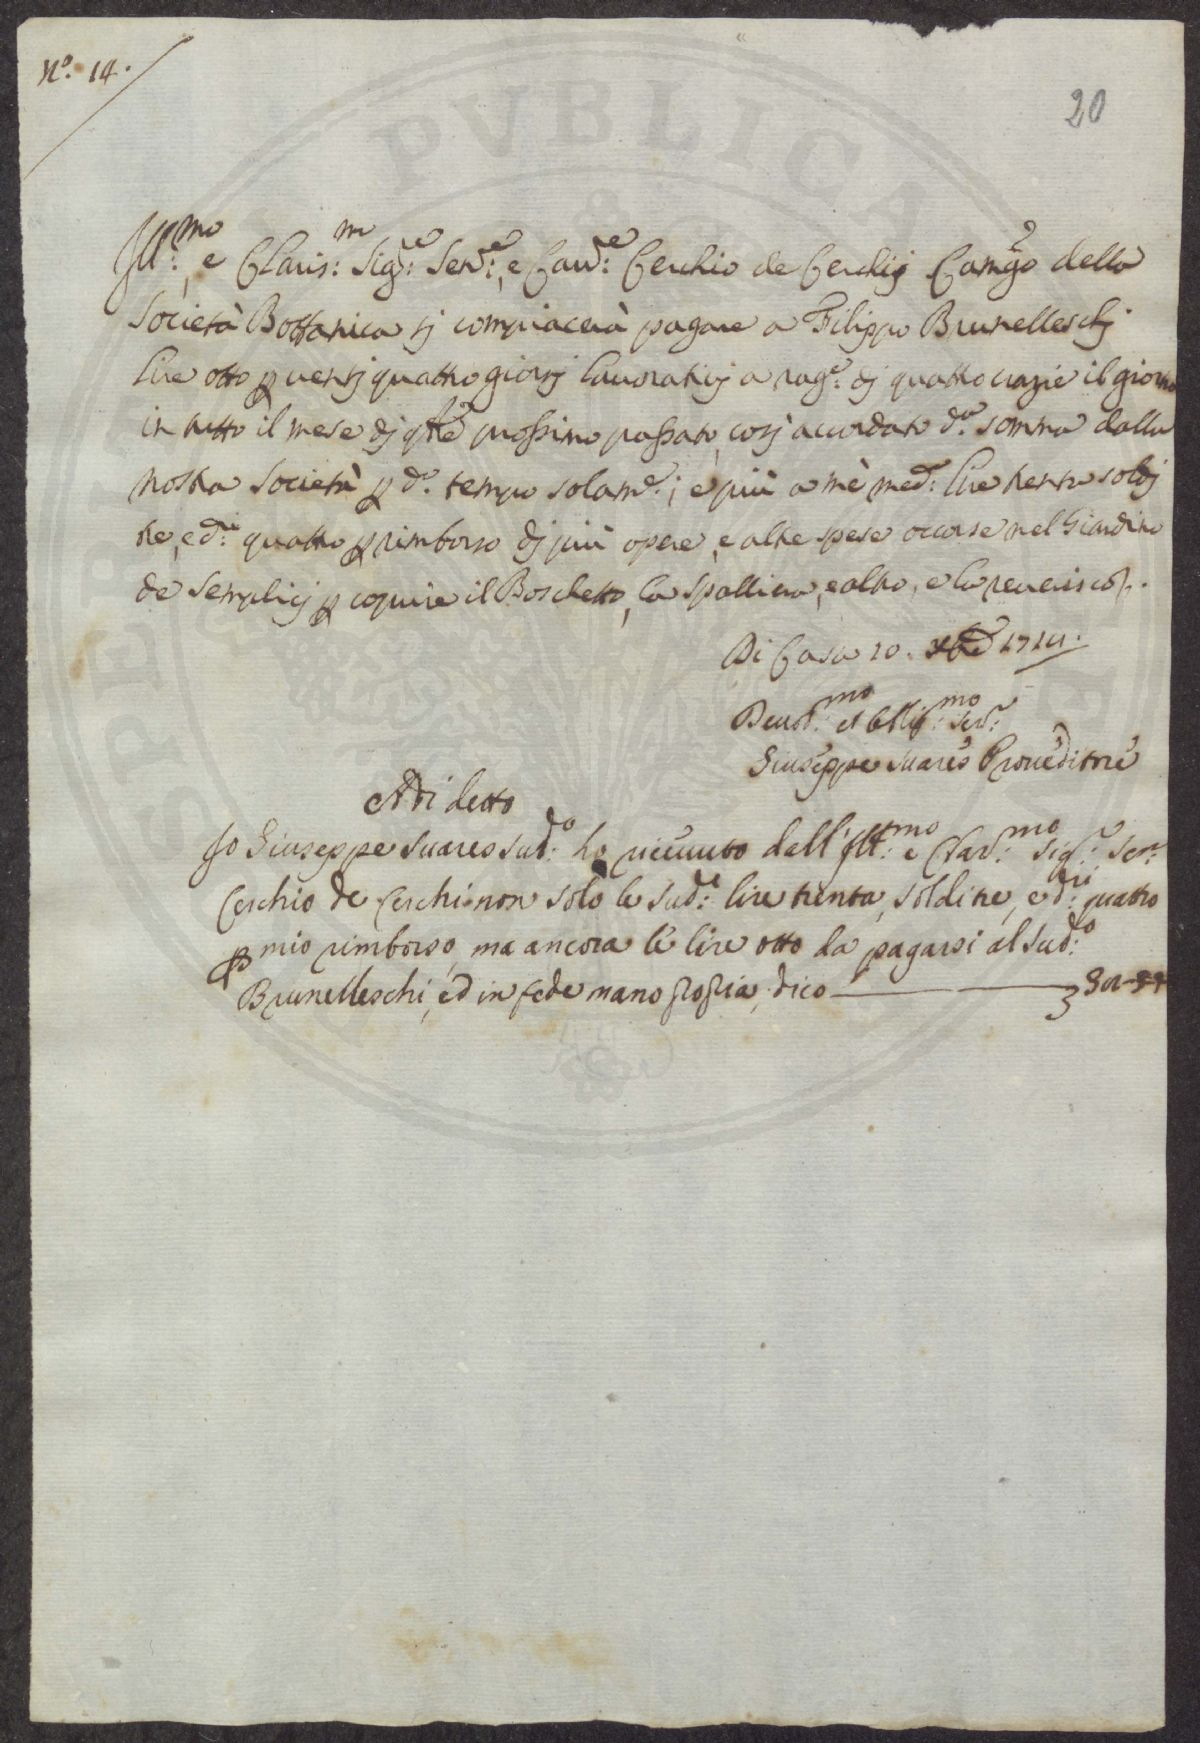 N.º 14.
20
Ill.mo, e Claris.m Sig.re Sen.re, e Cav.re Cerchio de Cerchij Camgo della
Società Bottanica si compiacerà pagare a Filippo Brunelleschj
lire otto p ventj quattro giornj lavorativj a rag.e dj quattro crazie il giorno
in tutto il mese dj 9bre prossimo passato, così accordato d.a somma dalla
nostra Società p d.o tempo solam.e; e più a mè med.o lire trenta soldj
tre, e d.ri quattro p rimborso dj più opere, e altre spese occorse nel Giardino
de Semplicj p coprire il Boschetto, la Spalliera, e altro, e la reverisco.
Di Casa 10. Xbre 1714.
Devot.mo et Obblig.mo Ser.e
Giuseppe Suares Proveditore
Adi detto
Io Giuseppe Suares sud.o ho ricevuto dall'Ill.mo e Clar.mo Sig.r Sen.r
Cerchio de Cerchi non solo le sud.e lire trenta, soldi tre, e d.ri quattro
p mio rimborso, ma ancora le lire otto da pagarsi al sud.o
Brunelleschi, ed in fede mano propria dico